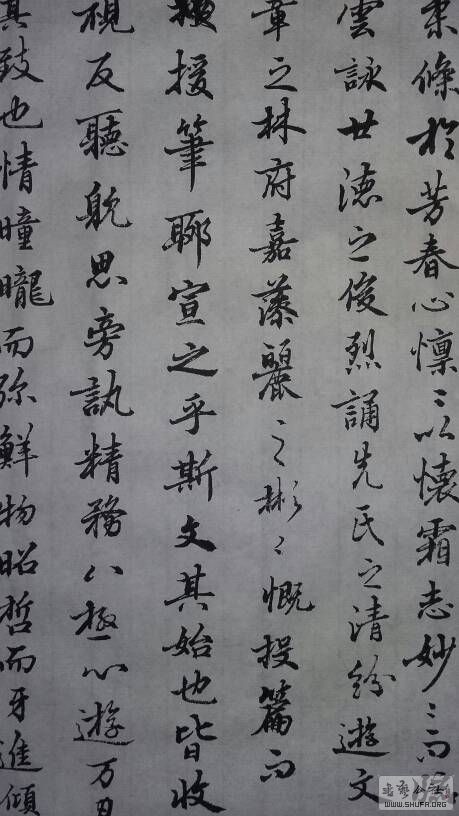 柔條於芳春心懍〻以懷霜志妙〻而
雲詠世德之俊烈誦先氏之清紛遊文
章之林府嘉藻麗之彬〻慨投篇而
援筆聊宣之乎斯文其始也皆收
視反聽躭思旁訊精務八極心遊万
其致也情曈曨而弥鮮物昭哲而牙進傾
WWW.SHUFA.ORG